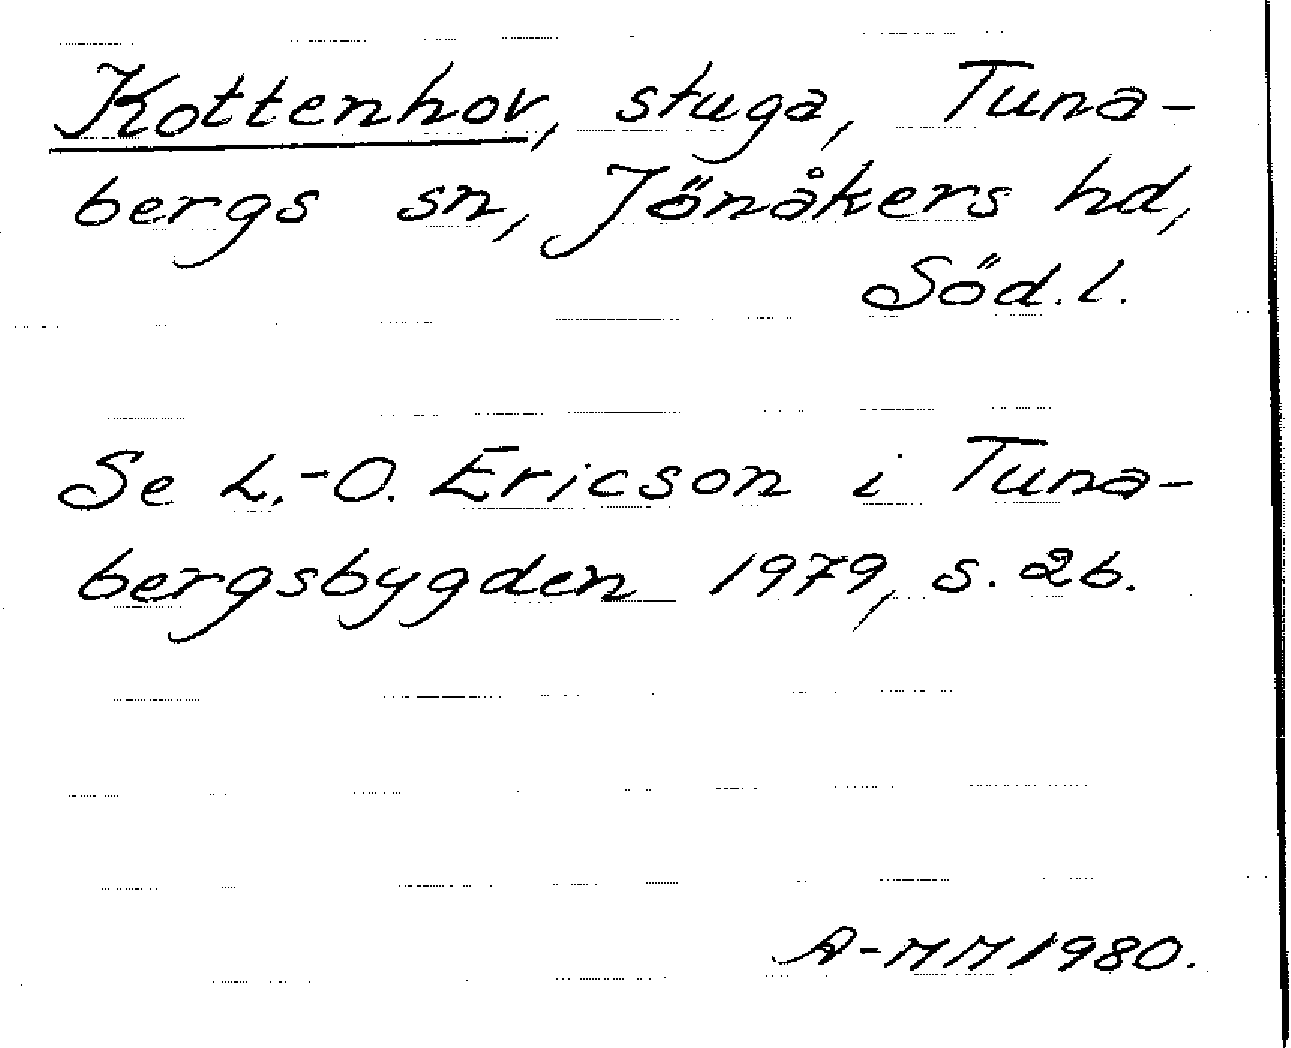 Kottenhov, stuga, Tuna-
bergs sn, Jönåkers hd,
Söd.l.
Se L.-O. Ericson i Tuna-
bergsbygden 1979, s. 26.
A-MM 1980.